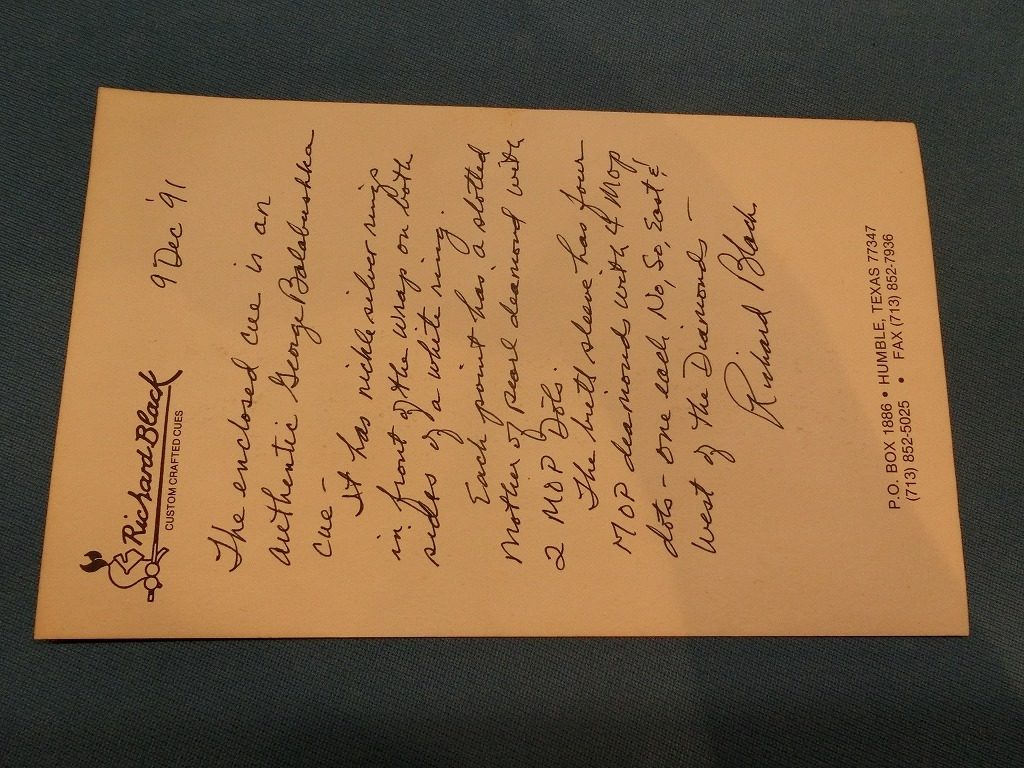 Richard Black
CUSTOM CRAFTED CUES
9 Dec '91
The enclosed cue is an
authentic George Balabushka
cue -
It has nickle silver rings
in front of the wrap on both
sides of a white ring
Each point has a slotted
Mother of pearl diamond with
2 MOP Dots.
The butt sleeve has four
MOP diamonds with 4 MOP
dots - one each No, So, East &
West of the Diamonds -
Richard Black
P.O. BOX 1886 • HUMBLE, TEXAS 77347
(713) 852-5025 • FAX (713) 852-7936